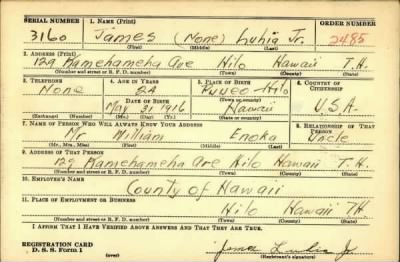 SERIAL NUMBER 1. NAME (Print) ORDER NUMBER
3160 James (None) Luhia Jr. 2485
(First) (Middle) (Last)
2. ADDRESS (Print)
129 Kamehameha Ave Hilo Hawaii T.H.
(Number and street or R. F. D. number) (Town) (County) (State)
3. TELEPHONE 4. AGE IN YEARS 5. PLACE OF BIRTH 6. COUNTRY OF CITIZENSHIP
None 24 Pueo Hilo
DATE OF BIRTH (Town or county)
May 31 1916 Hawaii U.S.A.
(Exchange) (Number) (Mo.) (Day) (Yr.) (State or country)
7. NAME OF PERSON WHO WILL ALWAYS KNOW YOUR ADDRESS 8. RELATIONSHIP OF THAT PERSON
Mr William Enoka Uncle
(Mr., Mrs., Miss) (First) (Middle) (Last)
9. ADDRESS OF THAT PERSON
129 Kamehameha Ave Hilo Hawaii T.H.
(Number and street or R. F. D. number) (Town) (County) (State)
10. EMPLOYER'S NAME
County of Hawaii
11. PLACE OF EMPLOYMENT OR BUSINESS
Hilo Hawaii T.H.
(Number and street or R. F. D. number) (Town) (County) (State)
I AFFIRM THAT I HAVE VERIFIED ABOVE ANSWERS AND THAT THEY ARE TRUE.
REGISTRATION CARD
D. S. S. Form 1 James Luhia Jr
(Registrant's signature)